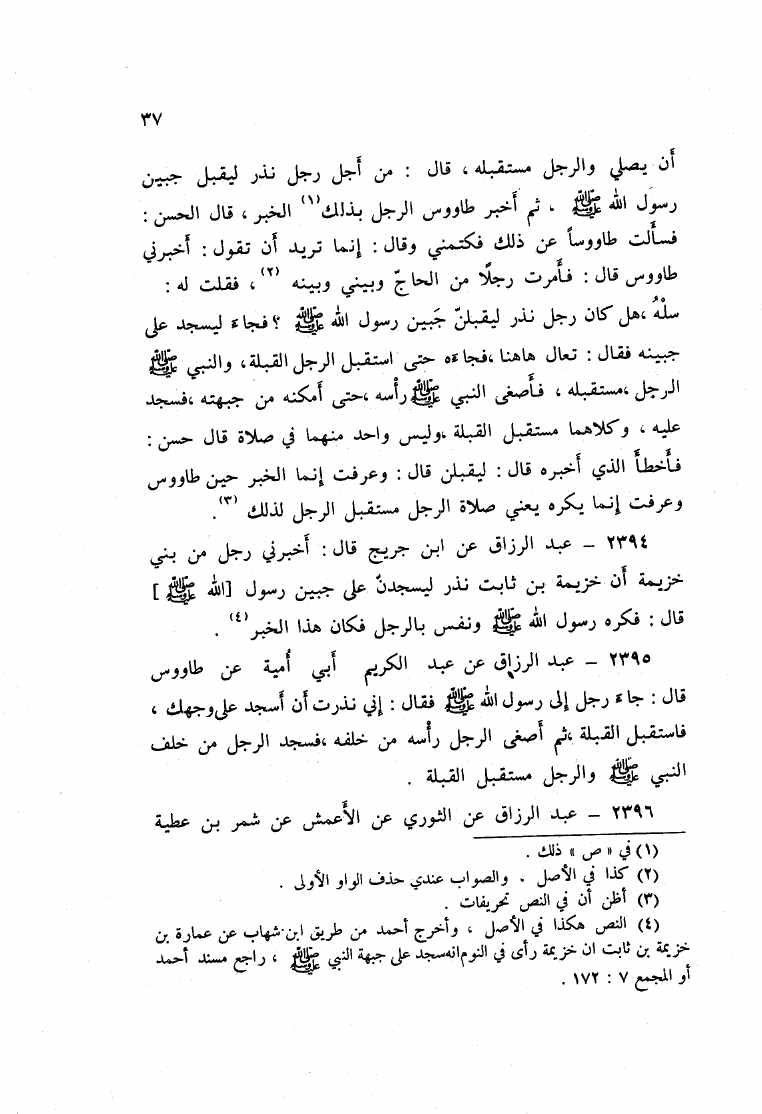 ٣٧
أن يصلي والرجل مستقبله ، قال : من أجل رجل نذر ليقبل جبين
رسول الله ﷺ . ثم أخبر طاووس الرجل بذلك (١) الخبر ، قال الحسن :
فسألت طاووساً عن ذلك فكتمني وقال : إنما تريد أن تقول : أخبرني
طاووس قال : فأمرت رجلًا من الحاجّ وبيني وبينه (٢) ، فقلت له :
سلْهُ ،هل كان رجل نذر ليقبلنّ جَبين رسول الله ﷺ ؟ فجاء ليسجد على
جبينه فقال : تعال هاهنا ،فجاءه حتى استقبل الرجل القبلة ، والنبي ﷺ
الرجل ،مستقبله ، فأصغى النبي ﷺ رأسه ،حتى أمكنه من جبهته ،فسجد
عليه ، وكلاهما مستقبل القبلة ،وليس واحد منهما في صلاة قال حسن :
فأخطأ الذي أخبره قال : ليقبلن قال : وعرفت إنما الخبر حين طاووس
وعرفت إنما يكره يعني صلاة الرجل مستقبل الرجل لذلك (٣) .
٢٣٩٤ – عبد الرزاق عن ابن جريج قال : أخبرني رجل من بني
خزيمة أن خزيمة بن ثابت نذر ليسجدنّ على جبين رسول [الله ﷺ ]
قال : فكره رسول الله ﷺ ونفس بالرجل فكان هذا الخبر (٤) .
٢٣٩٥ – عبد الرزاق عن عبد الكريم أبي أُمية عن طاووس
قال : جاء رجل إلى رسول الله ﷺ فقال : إني نذرت أن أسجد على وجهك ،
فاستقبل القبلة ،ثم أصغى الرجل رأسه من خلفه ،فسجد الرجل من خلف
النبي ﷺ والرجل مستقبل القبلة .
٢٣٩٦ – عبد الرزاق عن الثوري عن الأعمش عن شمر بن عطية
(١) في « ص » ذلك .
(٢) كذا في الأصل . والصواب عندي حذف الواو الأولى .
(٣) أظن أن في النص تحريفات .
(٤) النص هكذا في الأصل ، وأخرج أحمد من طريق ابن شهاب عن عمارة بن
خزيمة بن ثابت ان خزيمة رأى في النوم انه سجد على جبهة النبي ﷺ ، راجع مسند أحمد
أو المجمع ٧ : ١٧٢ .